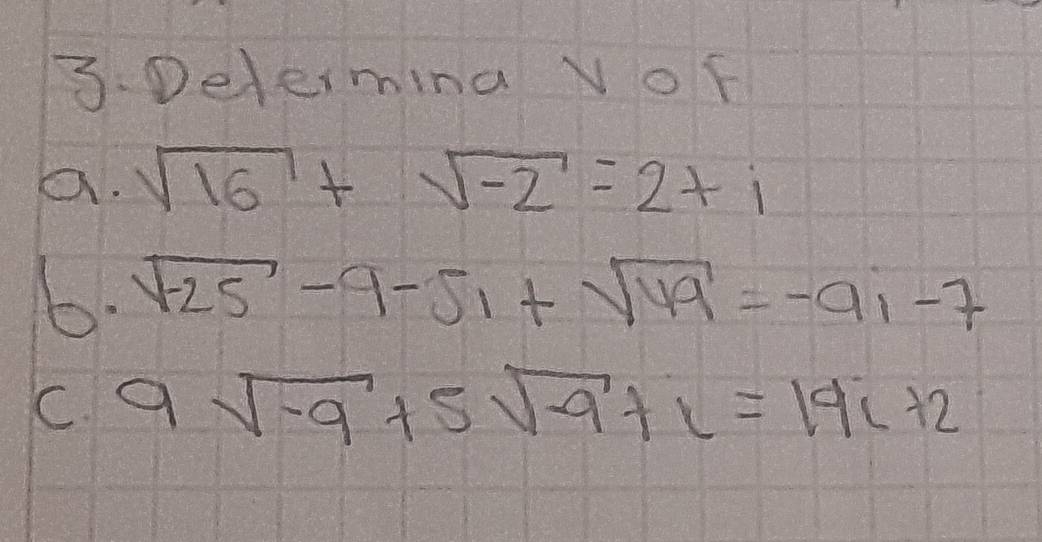 3. Determina V o F
a. √16 + √-2 = 2 + i
b. √-25 - 9 - 5i + √49 = -9i - 7
c. 9 √-9 + 5 √-9 + i = 19i + 2